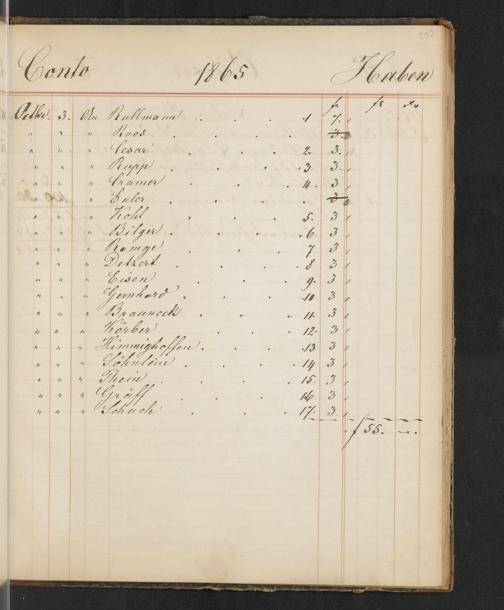 Conto 1865 Haben
fr fs xr
Octbr. 3. An Rullmann 1 7.
" " " Roos 3.
" " " Cesar 2. 3.
" " " Rupp 3 3.
" " " Cramer 4. 3
" " " Euler 3
" " " Kohl 5. 3
" " " Bilger 6. 3
" " " Ramge 7 3
" " " Detzert 8 3
" " " Eisen 9. 3
" " " Gernhard 10 3
" " " Brauneck 11. 3
" " " Körber 12. 3
" " " Himmighoffen 13 3
" " " Söhnlein 14 3
" " " Thein 15. 3
" " " Gräff 16 3
" " " Schuch 17. 3
f 55. "